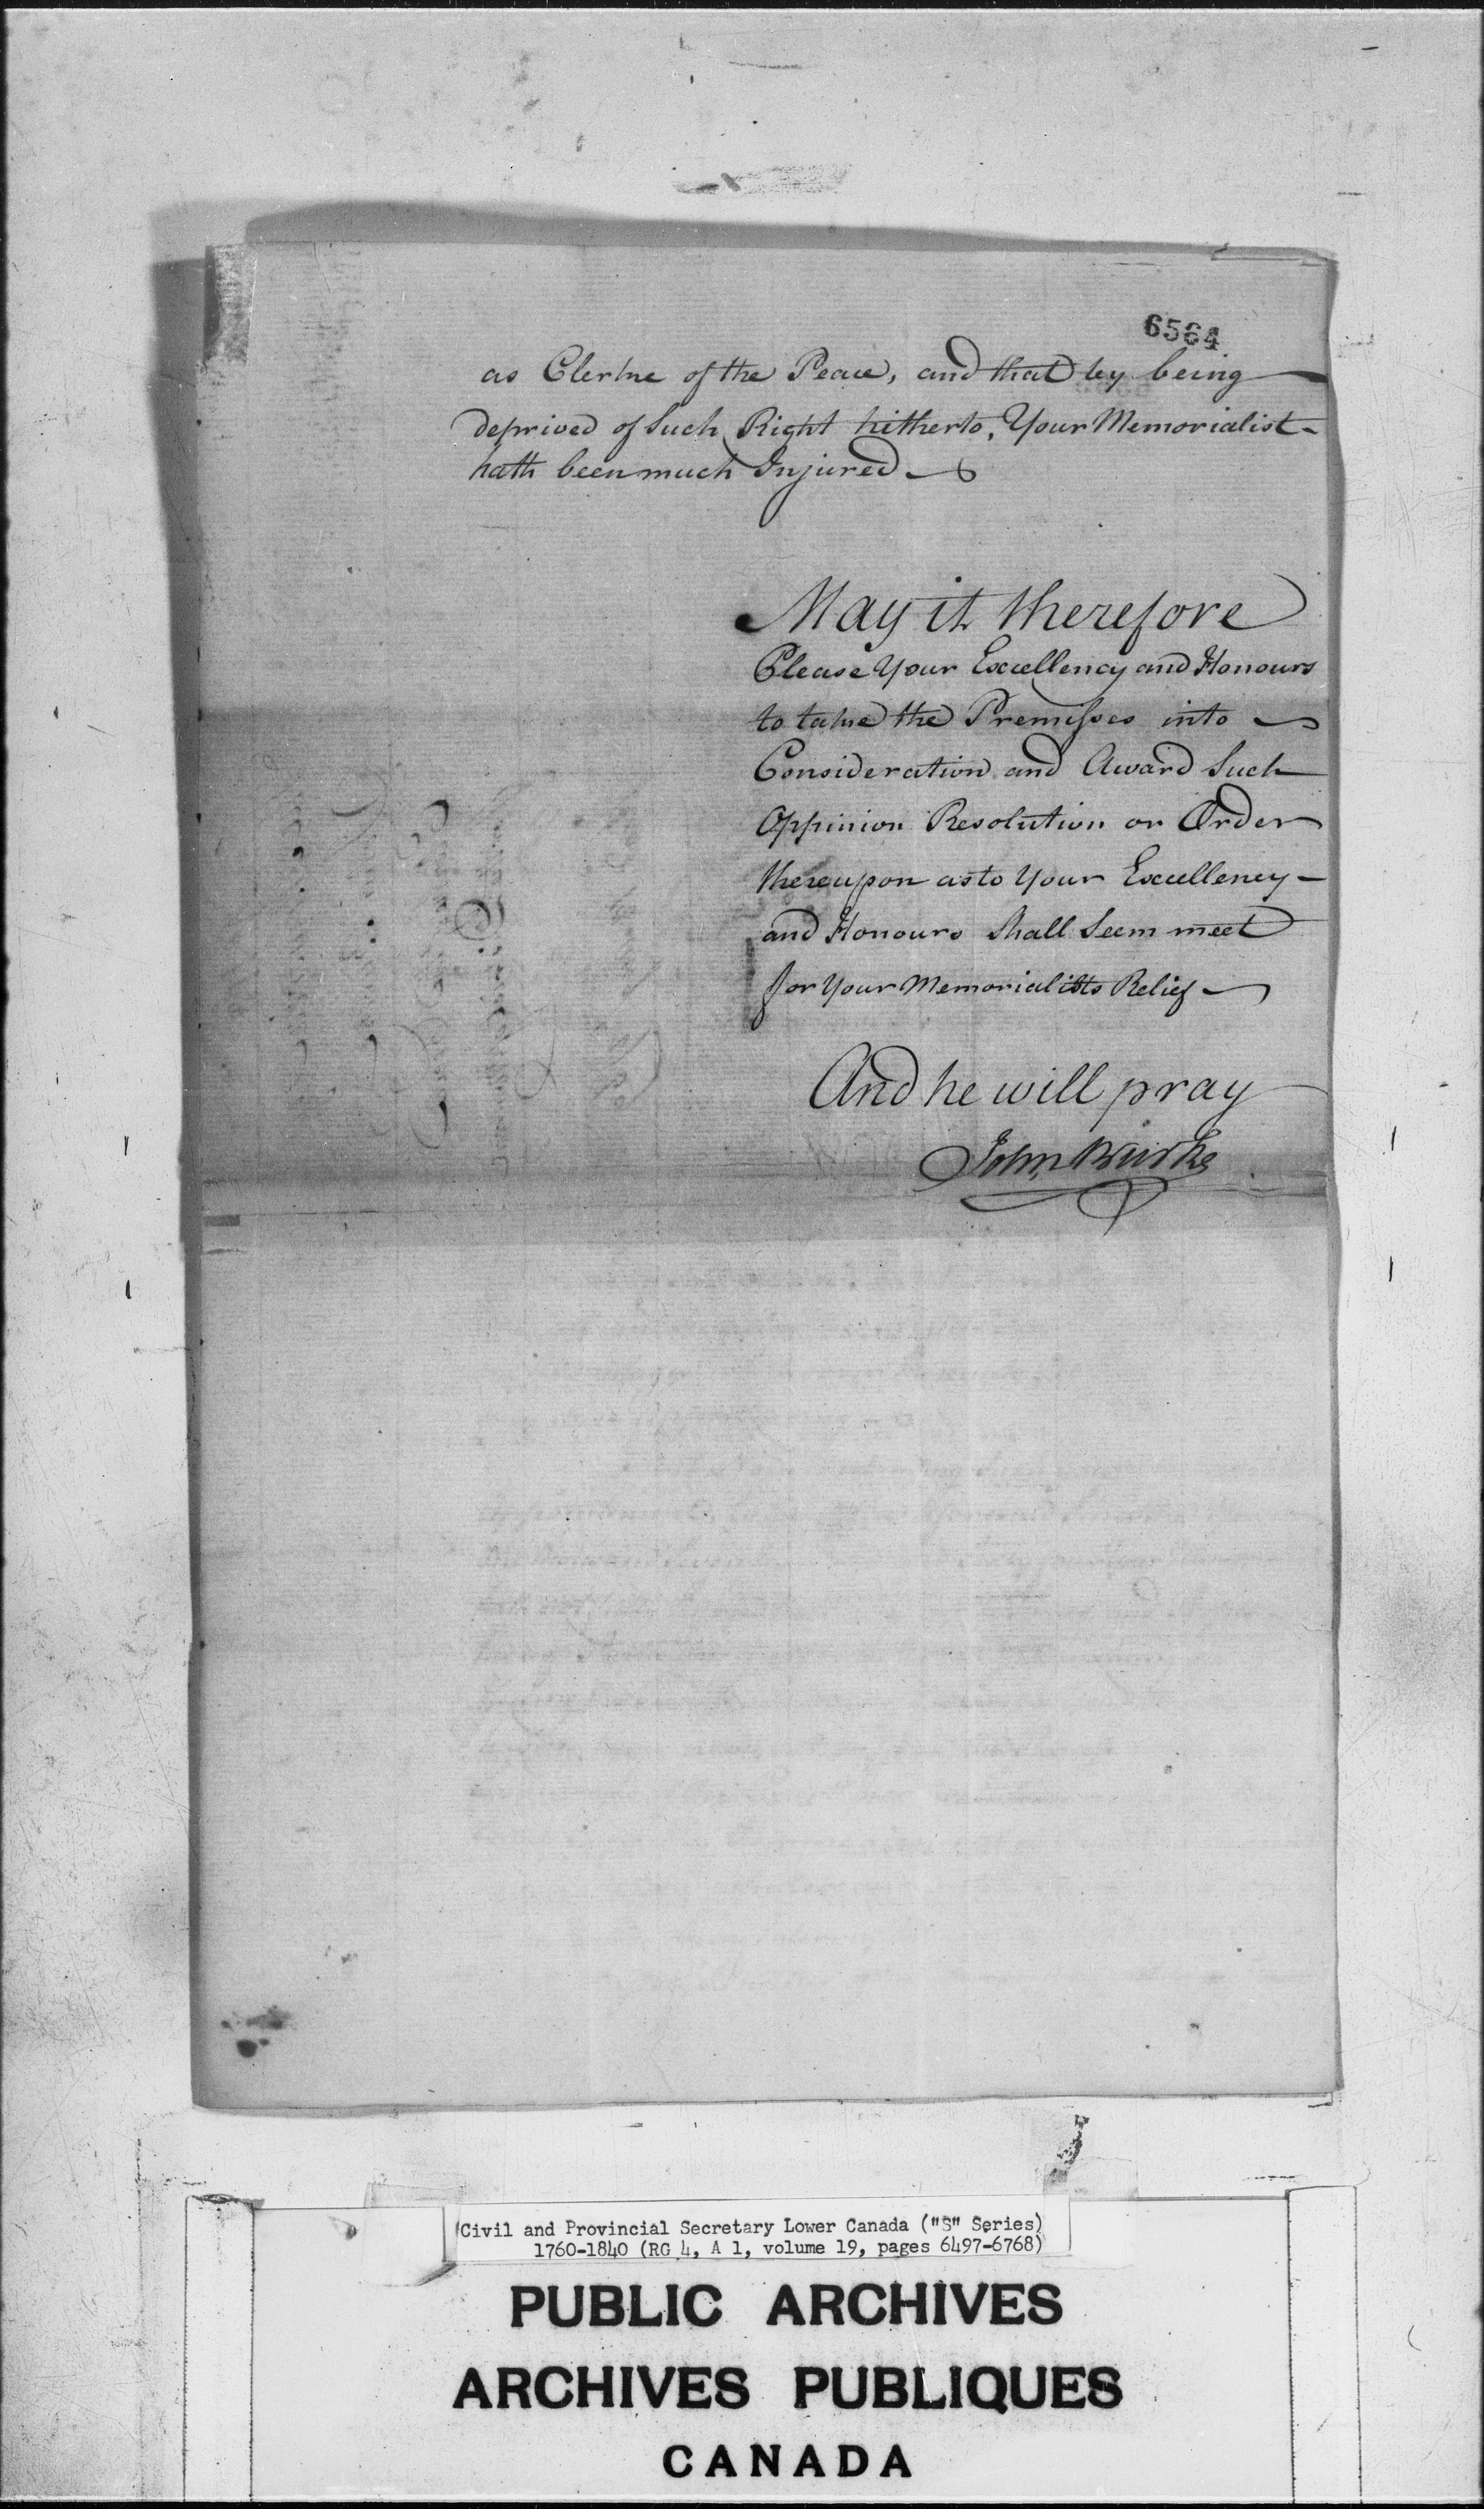 6564
as Clerke of the Peace, and that by being
deprived of Such Right hitherto, Your Memorialist
hath been much Injured
May it therefore
Please Your Excellency and Honours
to take the Premisses into
Consideration and Award Such
Oppinion Resolution or Order
thereupon as to Your Excellency
and Honours Shall Seem meet
for Your Memorialists Relief
And he will pray
John Burke
Civil and Provincial Secretary Lower Canada ("S" Series)
1760-1840 (RG 4, A 1, volume 19, pages 6497-6768)
PUBLIC ARCHIVES
ARCHIVES PUBLIQUES
CANADA